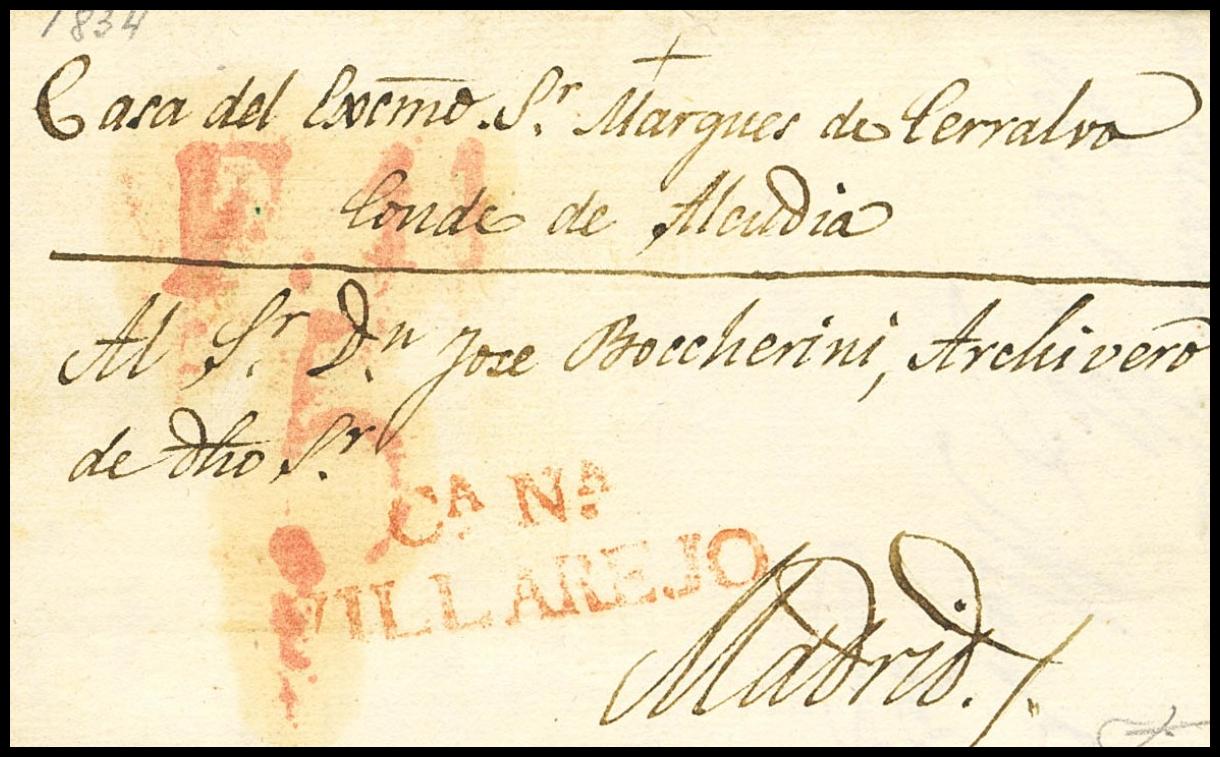 1834
Casa del Excmo. Sr. Marques de Cerralvo
Conde de Alcudia
Al Sr. Dn. Jose Boccherini, Archivero
de dho Sr.
CA NA
VILLAREJO
Madrid.